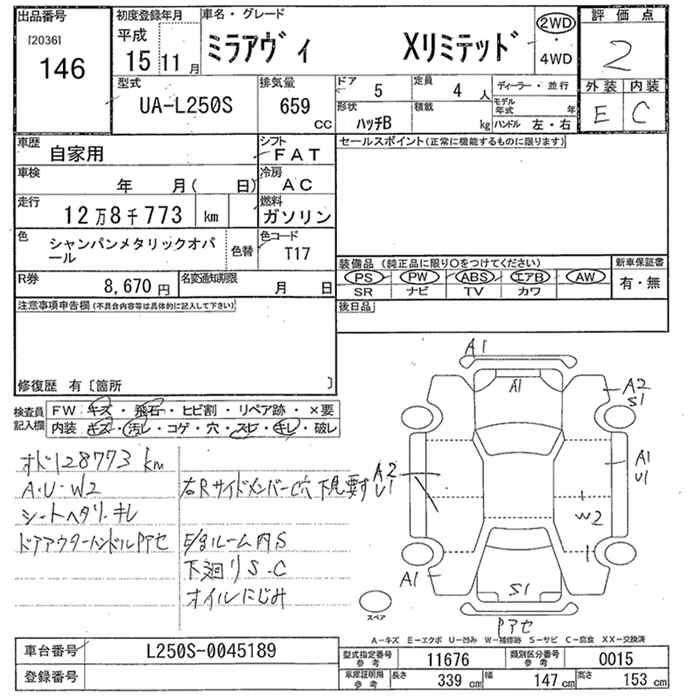 出品番号
[2036]
146
初度登録年月
平成
15年 11月
車名・グレード
ミラアヴィ Xリミテッド
2WD
4WD
評価点
2
外装 内装
E C
型式
UA-L250S
排気量
659 CC
ドア 5
定員 4 人
形状 ハッチB
積載 kg
ディーラー・並行
モデル年式 年
ハンドル 左・右
車歴 自家用
シフト FAT
車検 年 月( 日)
冷房 AC
走行 12万8千773 km
燃料 ガソリン
色 シャンパンメタリックオパール
色替
色コード T17
R券 8,670円
名変通知期限 月 日
セールスポイント(正常に機能するものに限ります)
装備品(純正品に限り○をつけてください)
PS PW ABS エアB AW
SR ナビ TV カワ
新車保証書
有・無
後日品
注意事項申告欄(不具合内容等は具体的に記入して下さい)
修復歴 有〔箇所 〕
検査員記入欄
FW キズ・飛石・ヒビ割・リペア跡・×要
内装 キズ・汚レ・コゲ・穴・スレ・キレ・破レ
オド128773km
A・U・W2
シートヘタリ・キレ
ドアアウターハンドルPアセ
右Rサイドメンバー C穴 下見要す
E/gルーム内S
下廻りS・C
オイルにじみ
A1
A1
A2
S1
A2
U1
A1
U1
W2
A1
S1
Pアセ
スペア
A-キズ E-エクボ U-凹み W-補修跡 S-サビ C-腐食 XX-交換済
車台番号 L250S-0045189
登録番号
型式指定番号参考 11676
類別区分番号参考 0015
車庫証明用参考 長さ 339cm 幅 147cm 高さ 153cm